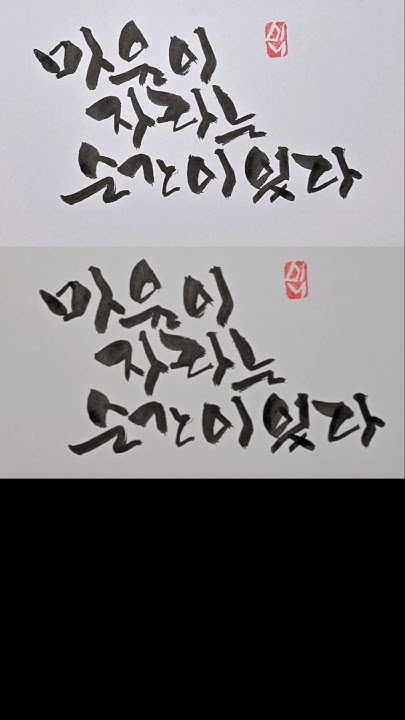 마음이
자라는
순간이 있다
마음이
자라는
순간이 있다